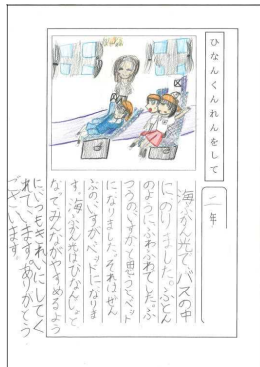 ひなんくんれんをして
二年
海ぶん光でバスの中
にのりました。ふとん
のようにふわふわでした。ふ
つうのいすかと思ったらベット
になりました。それはぜん
ぶのいすがベッドになりま
す。海ぶん光はひなんじょと
なってみんながやすめるよう
にいつもきれいにしてく
れています。ありがとう
ございます。